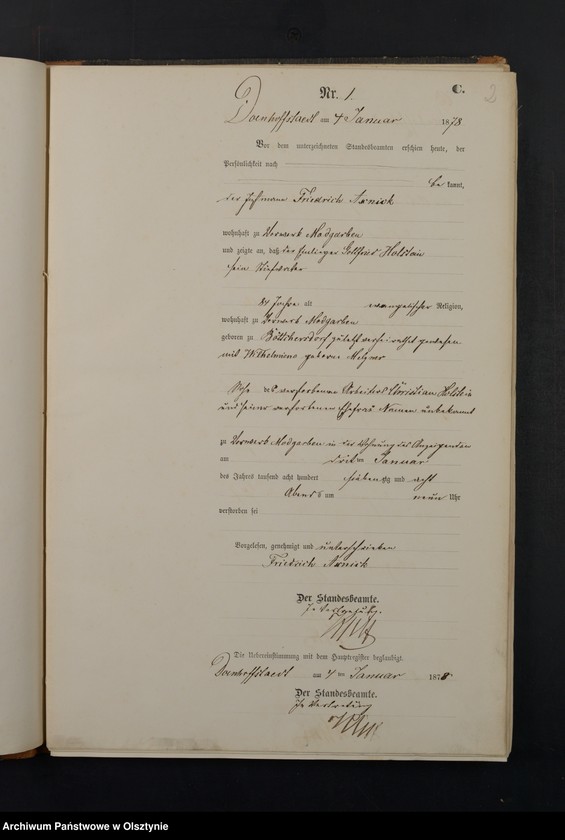 Nr. 1. C. 2
Doenhoffstaedt am 4 Januar 1878
Vor dem unterzeichneten Standesbeamten erschien heute, der
Persönlichkeit nach
bekannt,
der Friedrich
wohnhaft zu Vorwerk Modgarben
und zeigte an, daß der Gottfried Holstein
sein Stiefvater
84 Jahre alt evangelischer Religion,
wohnhaft zu Vorwerk Modgarben
geboren zu Böttchersdorf zuletzt verheirathet gewesen
mit Wilhelmine geborne
Sohn des verstorbenen Arbeiters Christian Holstein
und seiner verstorbenen Ehefrau Namen unbekannt
zu Vorwerk Modgarben in der Wohnung des Anzeigenden
am dritten Januar
des Jahres tausend acht hundert siebenzig und acht
Abends um neun Uhr
verstorben sei
Vorgelesen, genehmigt und unterschrieben
Friedrich
Der Standesbeamte.
In Vertretung.
Die Uebereinstimmung mit dem Hauptregister beglaubigt.
Doenhoffstaedt am 4 ten Januar 1878
Der Standesbeamte.
In Vertretung
Archiwum Państwowe w Olsztynie